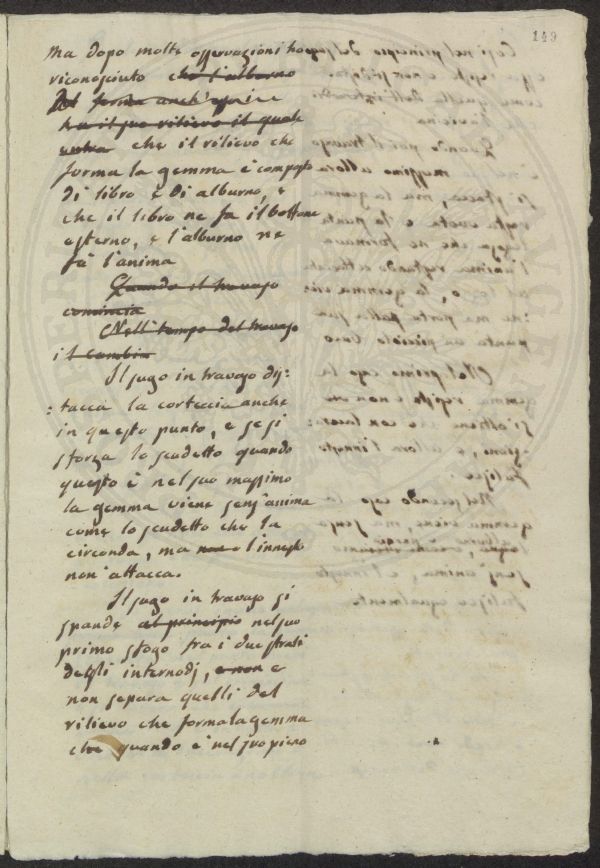 149
Ma dopo molte osservazioni ho
riconosciuto che l'alburno
forma anch'esso
ha il suo rilievo il quale
entra che il rilievo che
forma la gemma è composto
di libro e di alburno, e
che il libro ne fa il bottone
esterno, e l'alburno ne
fà l'anima
Quando il travaso
comincia
Nell'tempo del travaso
il cambio
Il sugo in travaso dis:
:tacca la corteccia anche
in questo punto, e se si
sforza lo scudetto quando
questo è nel suo massimo
la gemma viene senz'anima
come lo scudetto che la
circonda, ma non l'innesto
non attacca.
Il sugo in travaso si
spande al principio nel suo
primo sfogo tra i due strati
degli internodj, e non e
non separa quelli del
rilievo che forma la gemma
che quando è nel suo pieno